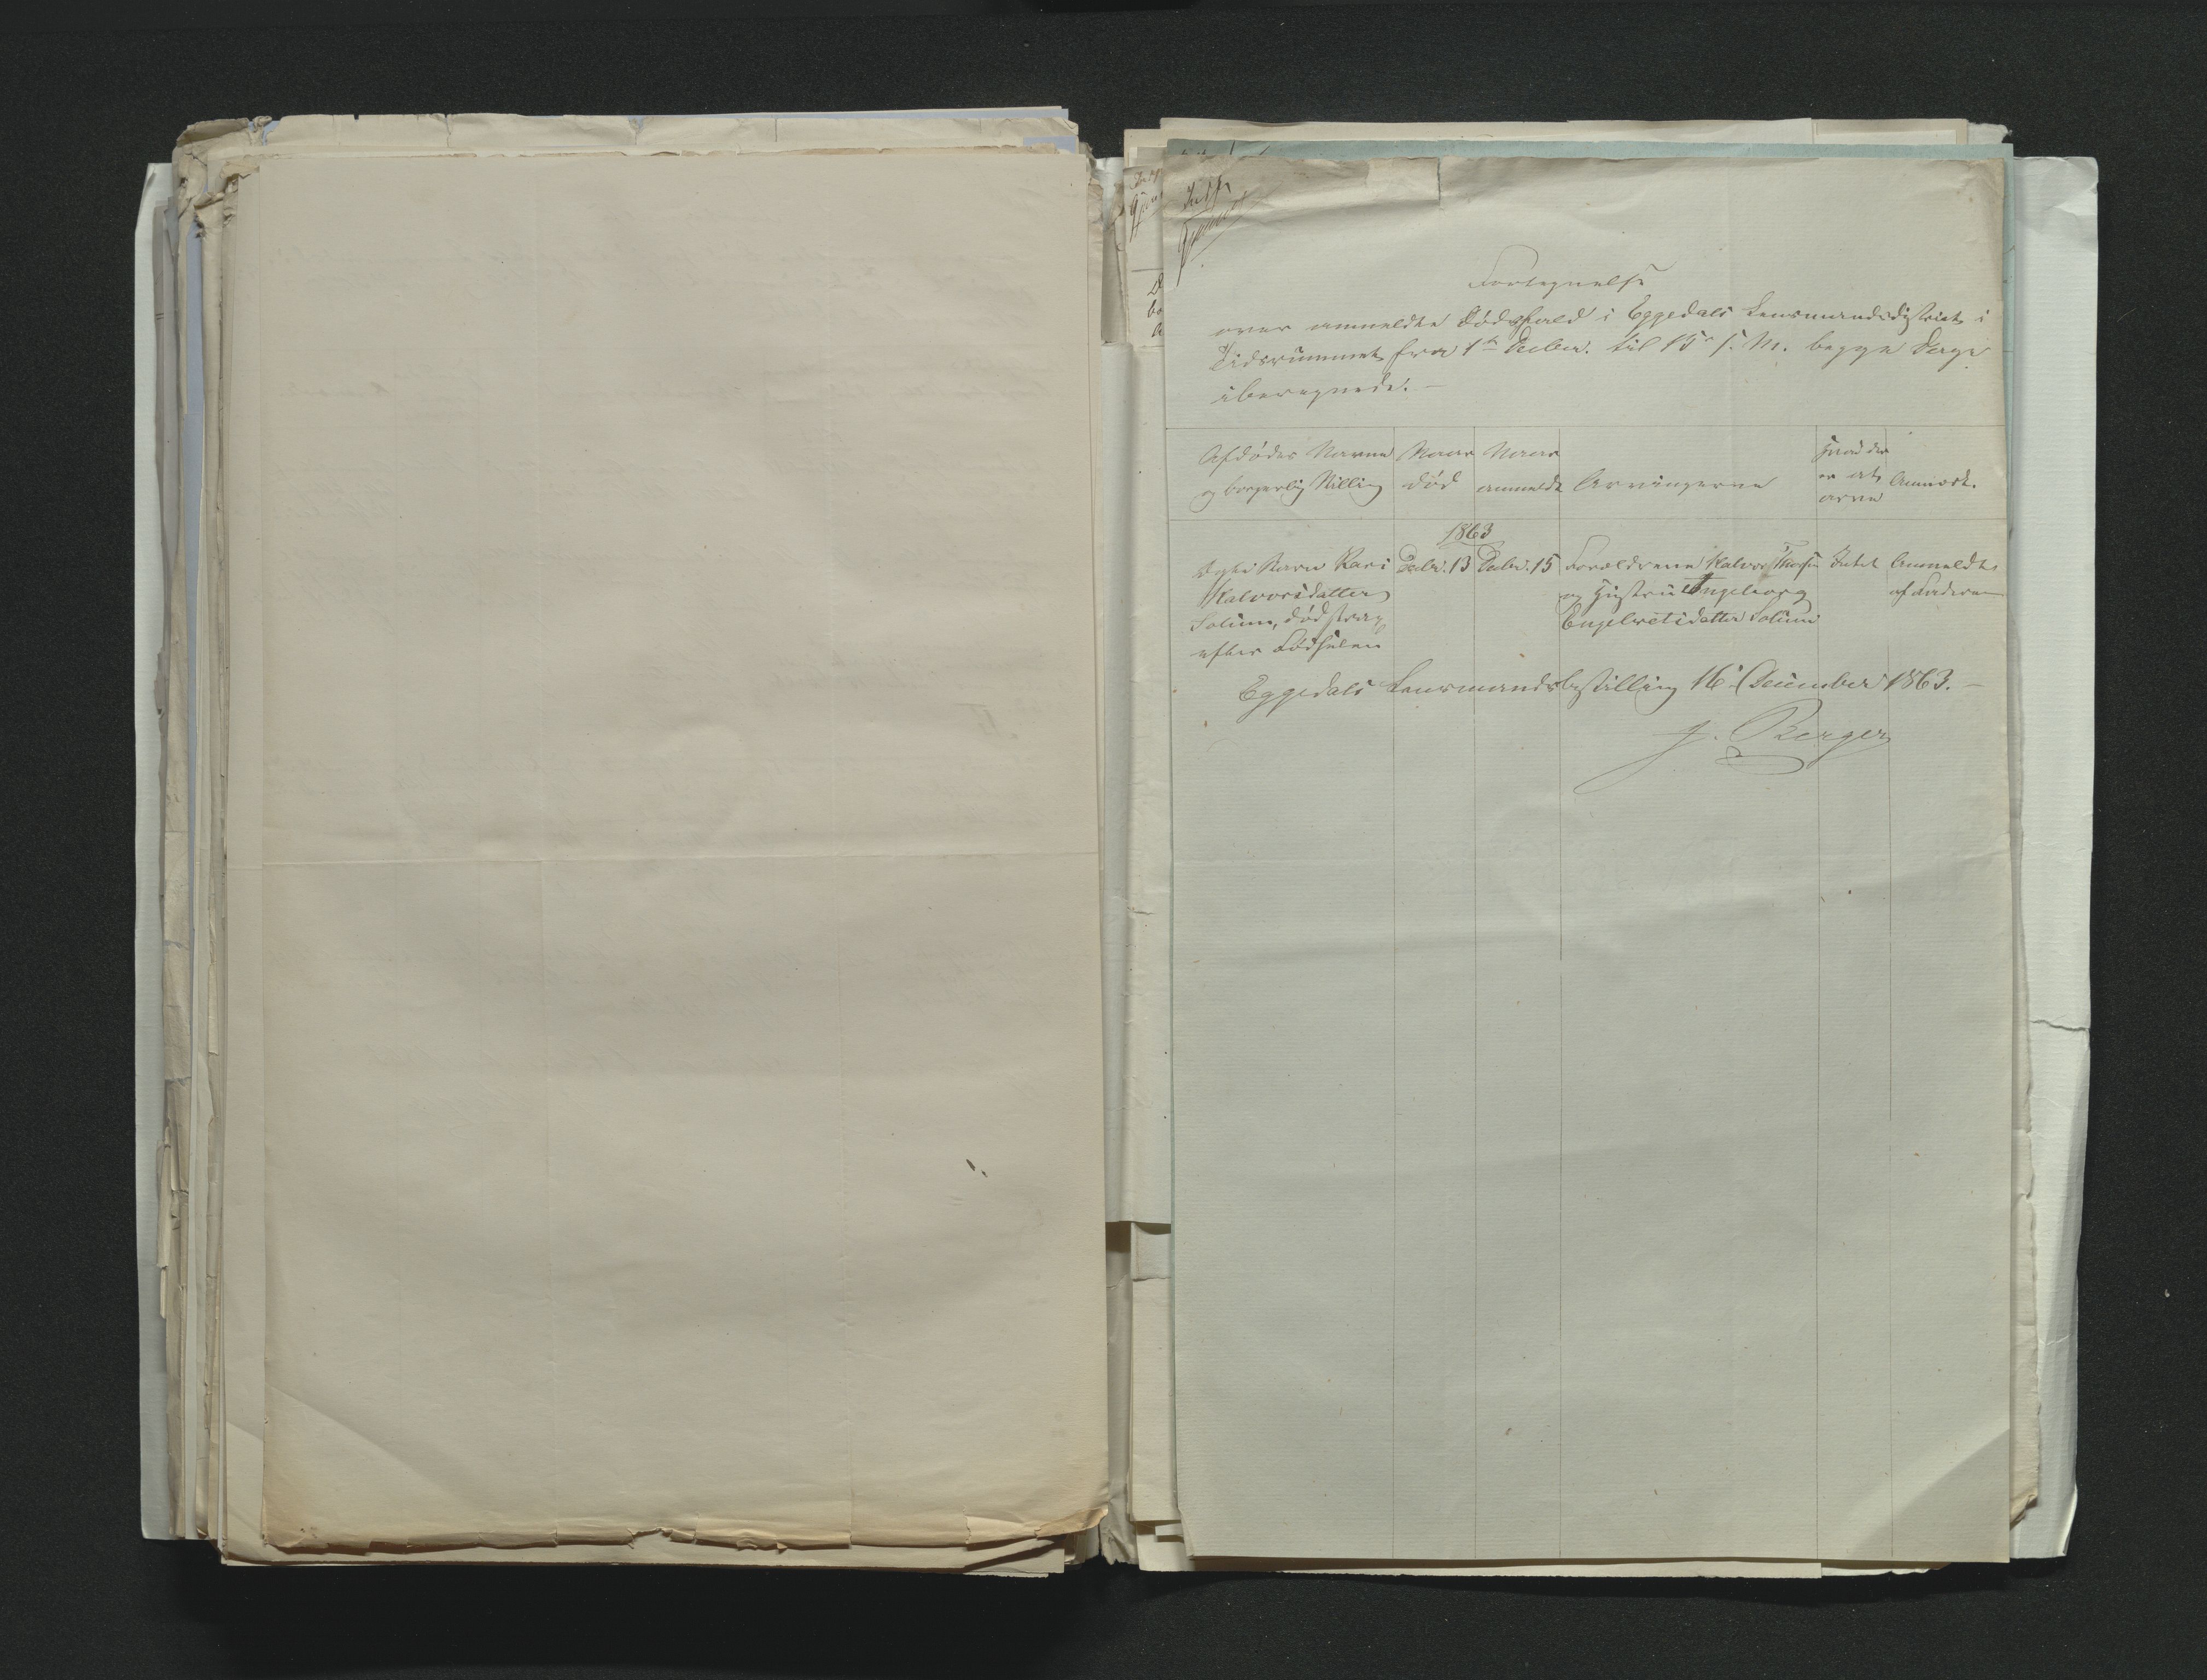 Indf
Fortegnelse
over anmeldte Dødsfald i Eggedals Lensmandsdistrict i
Tidsrummet fra 1ste Decbr. til 15de s. M. begge Dage
iberegnede. —
Afdødes Navn
og borgerlig Stilling
Naar
død
Naar
anmeldt
Arvingerne
Hvad der
er at
arve
Anmærk.
1863
Ægte Barn Kari
Halvorsdatter
Solum, død strax
efter Fødselen
Decbr. 13
Decbr. 15
Forældrene Halvor Thorsen
og Hustru Ingeborg
Engebretsdatter Solum
Intet
Anmeldt
af Faderen
Eggedals Lensmandsbestilling 16 December 1863. —
J. Berger